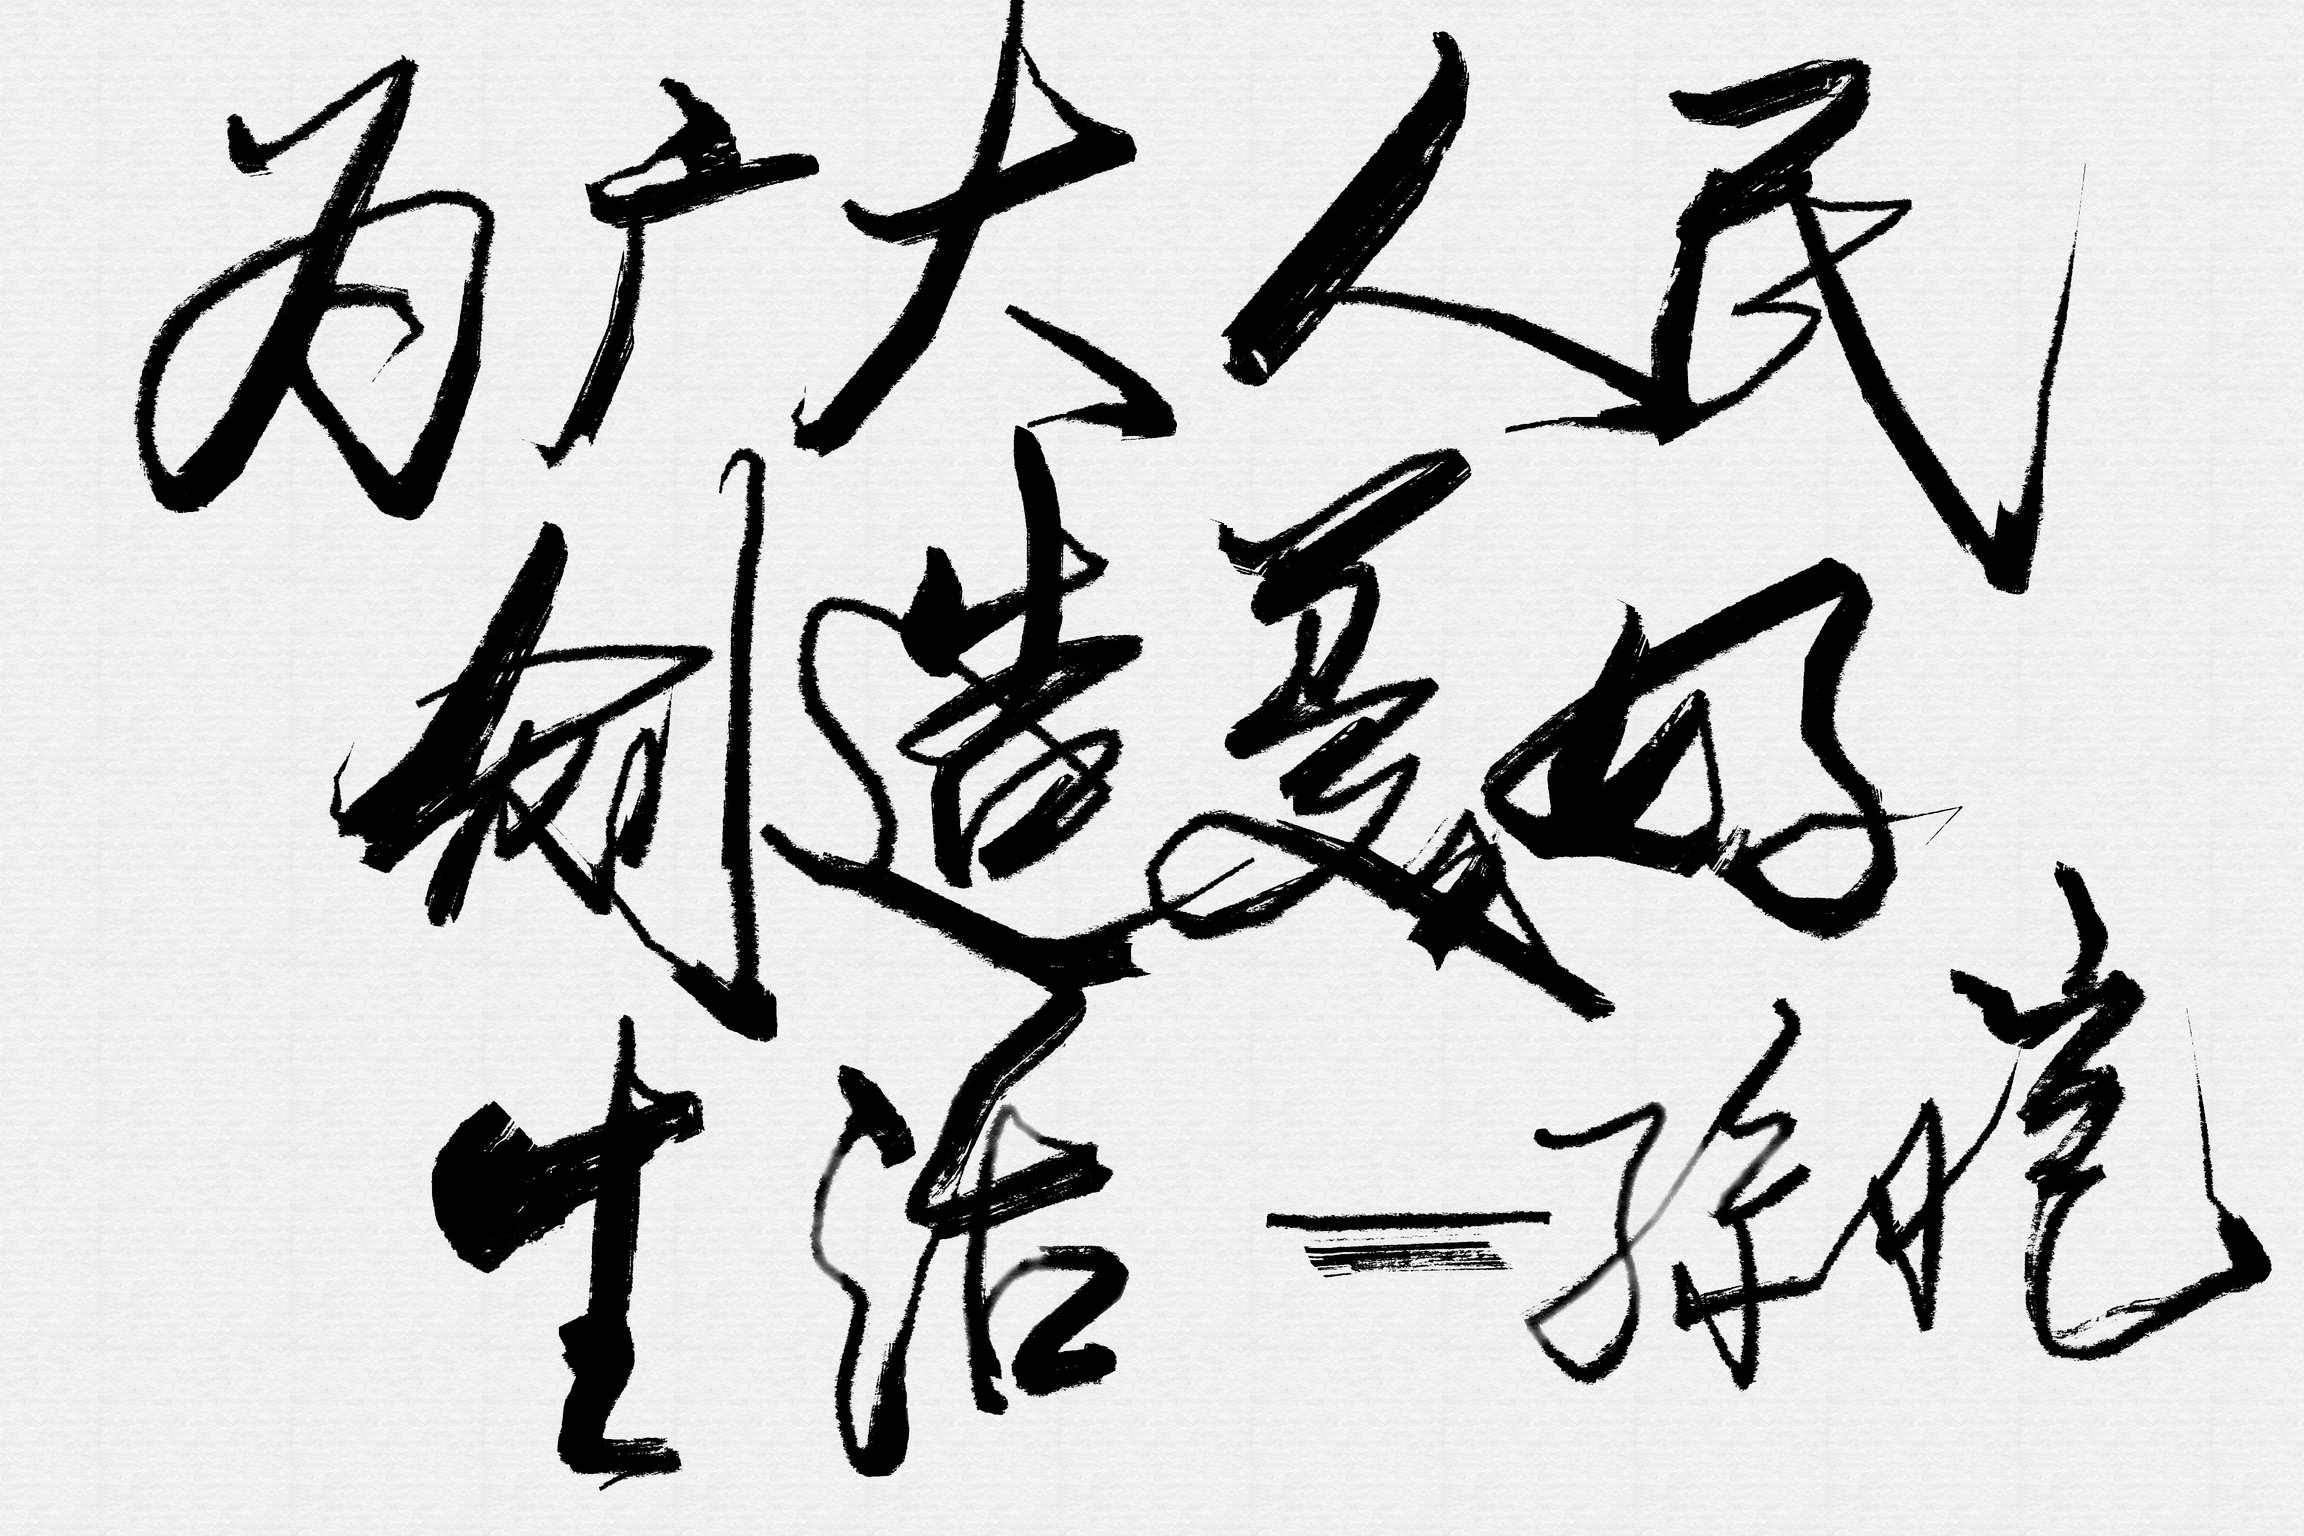 为广大人民
创造美好
生活 — 孙